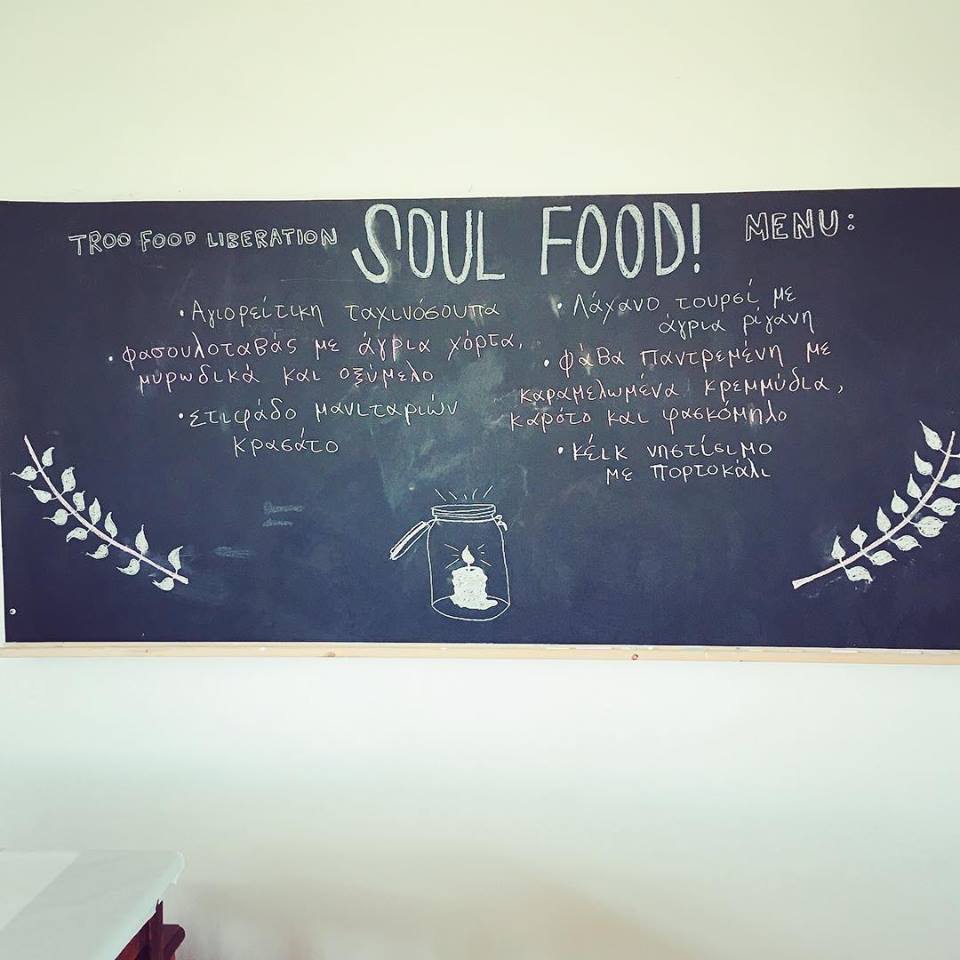 TROO FOOD LIBERATION SOUL FOOD! MENU:
• Αγιορείτικη ταχινόσουπα
• φασουλοταβάς με άγρια χόρτα,
μυρωδικά και οξύμελο
• Στιφάδο μανιταριών
κρασάτο
• Λάχανο τουρσί με
άγρια ρίγανη
• φάβα παντρεμένη με
καραμελωμένα κρεμμύδια,
καρότο και φασκόμηλο
• κέικ νηστίσιμο
με πορτοκάλι